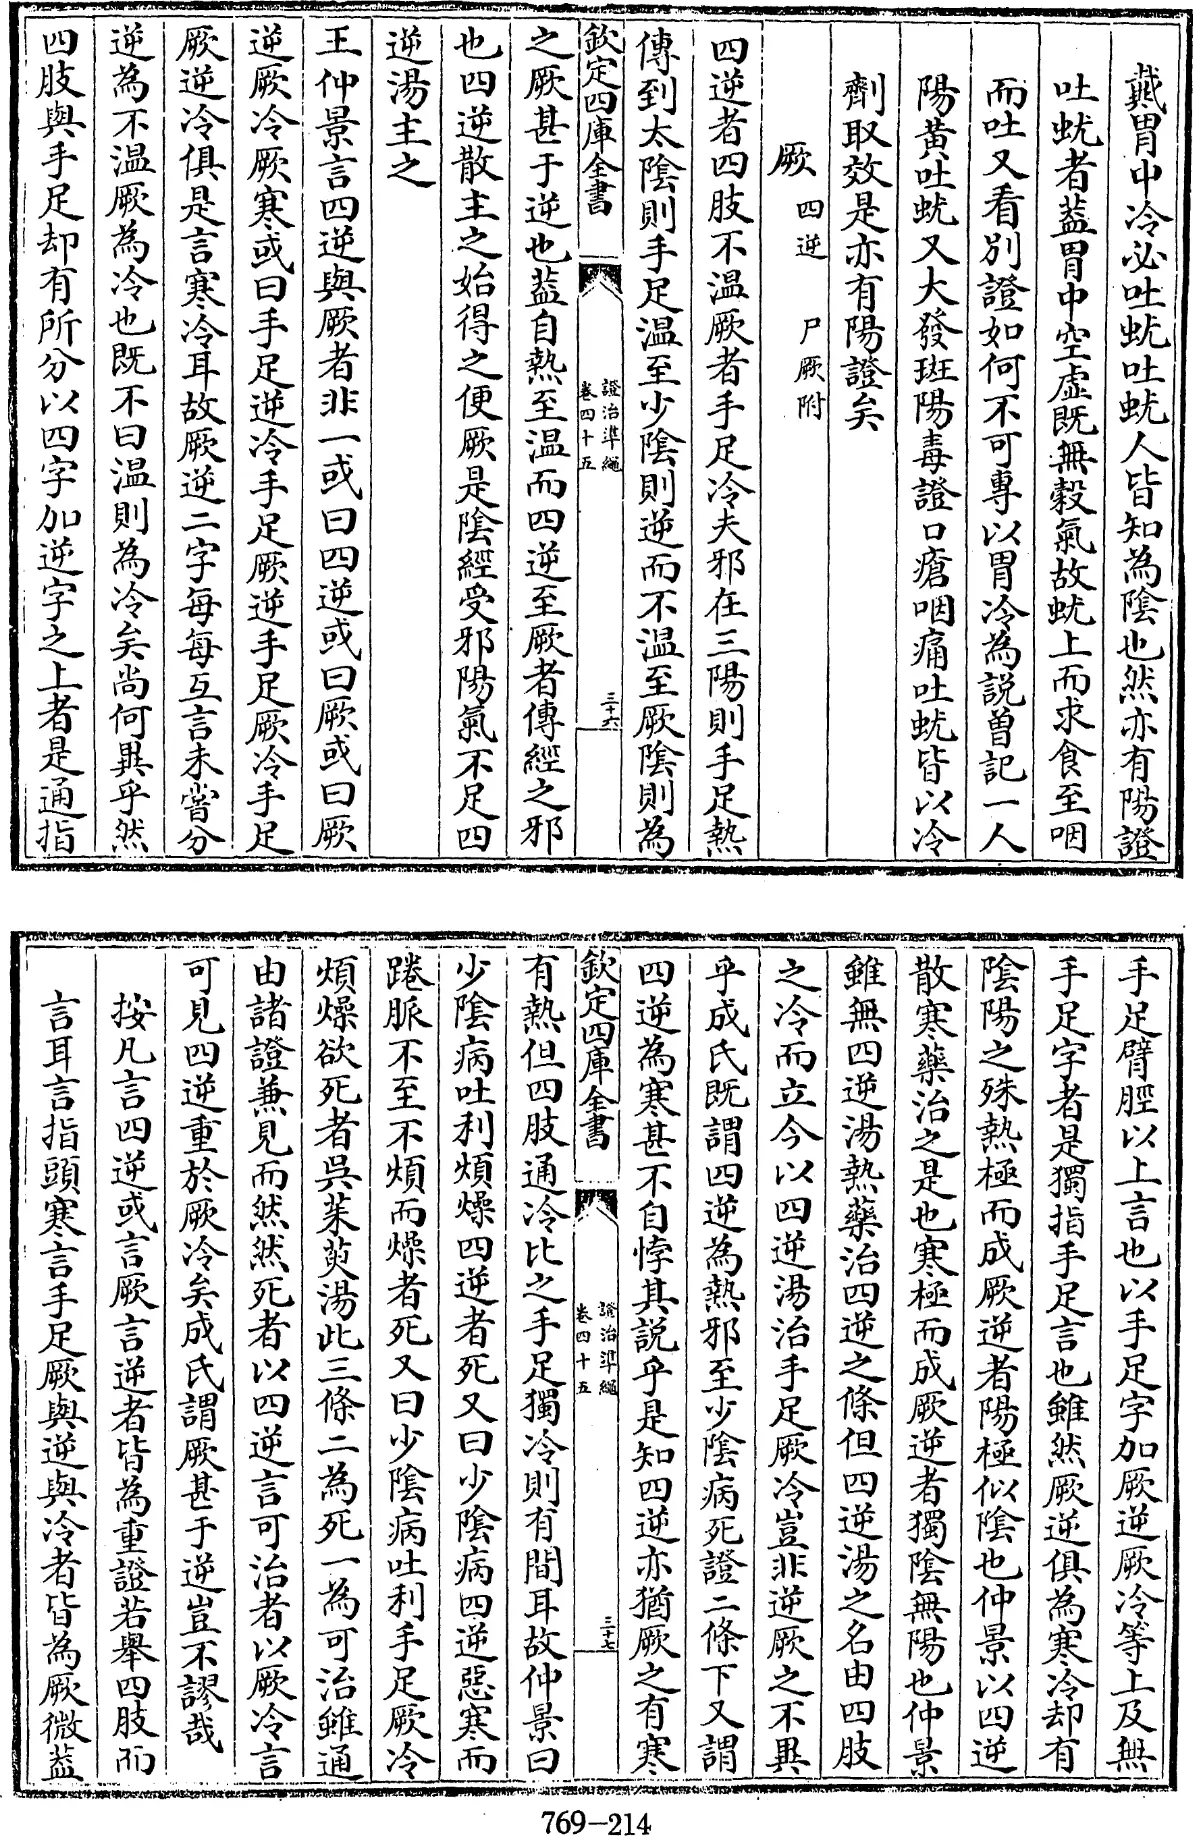 戴胃中冷必吐蚘吐蚘人皆知為陰也然亦有陽證
吐蚘者葢胃中空虛既無穀氣故蚘上而求食至咽
而吐又看別證如何不可專以胃冷為說曾記一人
陽黃吐蚘又大發斑陽毒證口瘡咽痛吐蚘皆以冷
劑取效是亦有陽證矣
厥 四逆 尸厥附
四逆者四肢不温厥者手足冷夫邪在三陽則手足熱
傳到太陰則手足温至少陰則逆而不温至厥陰則為
欽定四庫全書
證治準繩
卷四十五
三十六
之厥甚于逆也葢自熱至温而四逆至厥者傳經之邪
也四逆散主之始得之便厥是陰經受邪陽氣不足四
逆湯主之
王仲景言四逆與厥者非一或曰四逆或曰厥或曰厥
逆厥冷厥寒或曰手足逆冷手足厥逆手足厥冷手足
厥逆冷俱是言寒冷耳故厥逆二字每每互言未嘗分
逆為不温厥為冷也既不曰温則為冷矣尚何異乎然
四肢與手足却有所分以四字加逆字之上者是通指
手足臂脛以上言也以手足字加厥逆厥冷等上及無
手足字者是獨指手足言也雖然厥逆俱為寒冷却有
陰陽之殊熱極而成厥逆者陽極似陰也仲景以四逆
散寒藥治之是也寒極而成厥逆者獨陰無陽也仲景
雖無四逆湯熱藥治四逆之條但四逆湯之名由四肢
之冷而立今以四逆湯治手足厥冷豈非逆厥之不異
乎成氏既謂四逆為熱邪至少陰病死證二條下又謂
四逆為寒甚不自悖其說乎是知四逆亦猶厥之有寒
欽定四庫全書
證治準繩
卷四十五
三十七
有熱但四肢通冷比之手足獨冷則有間耳故仲景曰
少陰病吐利煩燥四逆者死又曰少陰病四逆惡寒而
踡脈不至不煩而燥者死又曰少陰病吐利手足厥冷
煩燥欲死者吳茱萸湯此三條二為死一為可治雖通
由諸證兼見而然然死者以四逆言可治者以厥冷言
可見四逆重於厥冷矣成氏謂厥甚于逆豈不謬哉
按凡言四逆或言厥言逆者皆為重證若舉四肢而
言耳言指頭寒言手足厥與逆與冷者皆為厥微葢
769-214